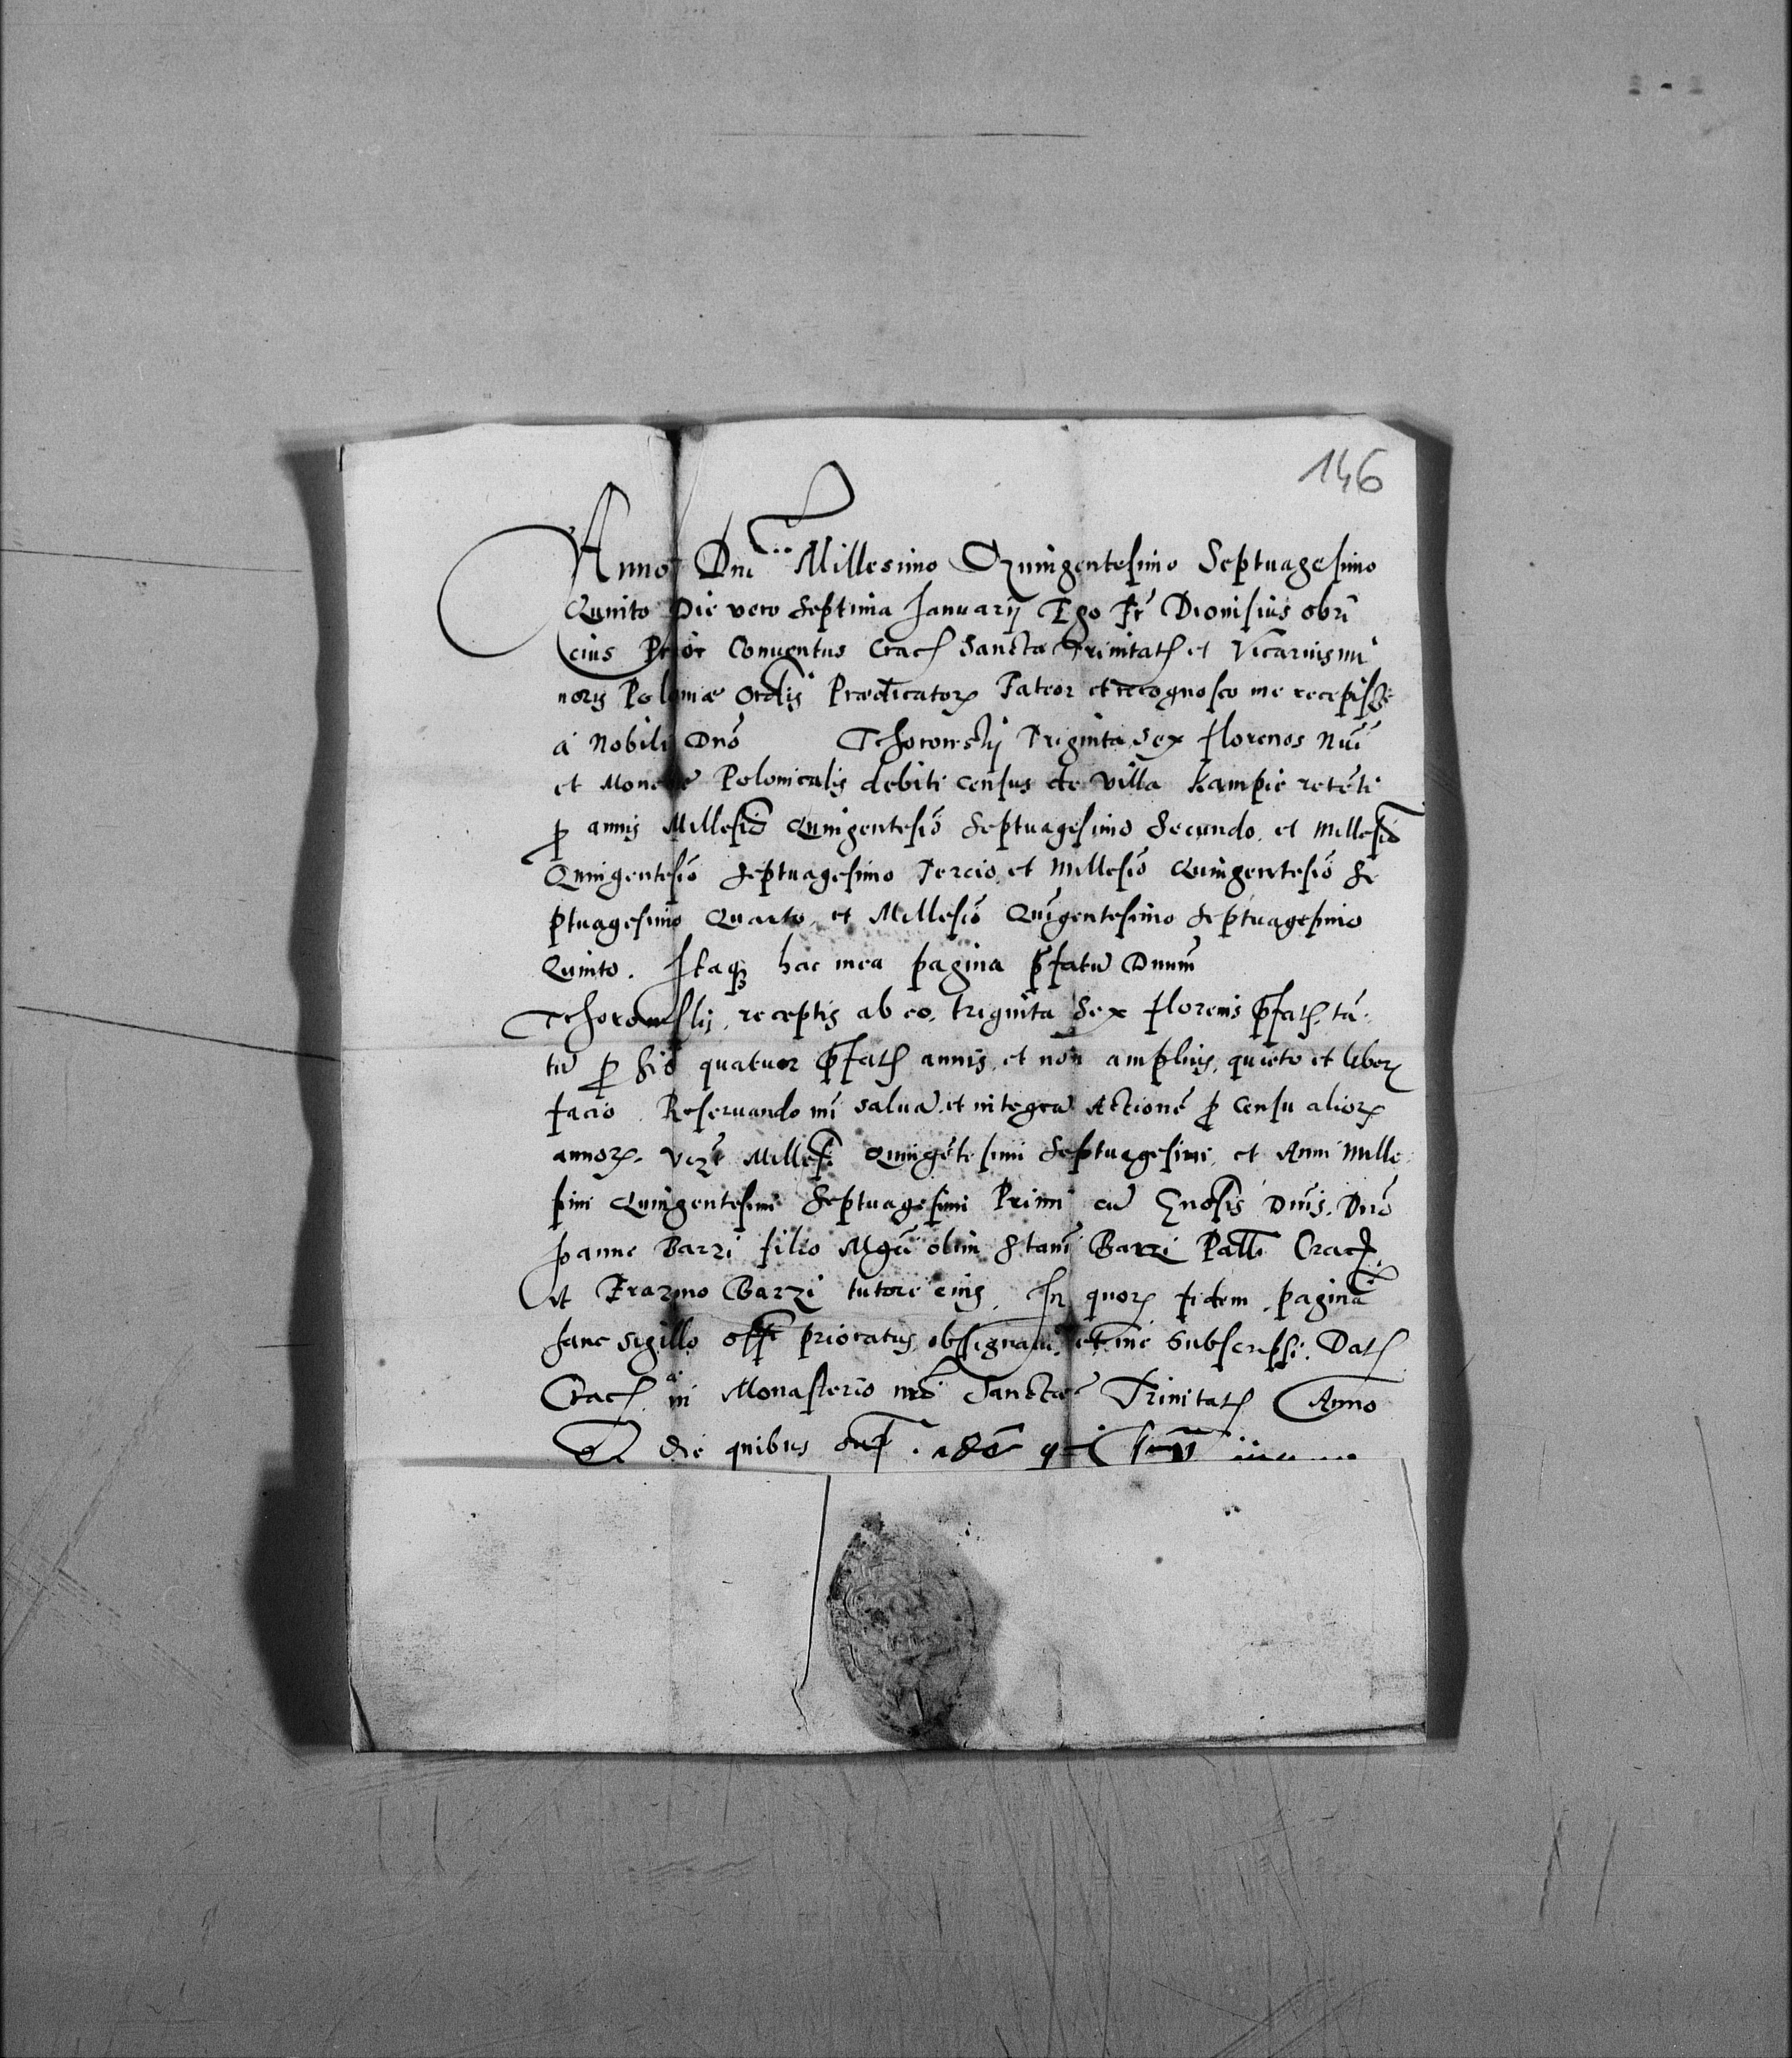 146
Anno Dni Millesimo Quingentesimo Septuagesimo
Quinto Die vero Septima Januarij Ego Fr Dionisius obri
cius Prior Conventus Crac Sanctæ Trinitatis et Vicarius mi
noris Poloniæ Ordis Prædicator Fateor et recognosco me recepisse
à Nobili Dno Tchorowskij Triginta Sex florenos Nui
et Monetæ Polonicalis debiti census de villa Kampie retēti
p annis Millesiō Quingentesiō Septuagesimo Secundo et Millesiō
Quingentesiō Septuagesimo Tercio et Millesiō Quingentesiō Se
ptuagesimo Quarto et Millesiō Quīgentesimo Septuagesimo
Quinto. Itaq hac mea pagina pfatū Dnum
Tchorowskij receptis ab eo triginta Sex florenis pfatis tā
tū p his quatuor pfatis annis et non amplius, quieto et liber
facio Reservando mi salvā et integrā Actionē p Censu alior
annor. Vz Millesi Quingētesimi Septuagesimi, et Anni Mille
simi Quingentesimi Septuagesimi Primi cū Gnosis Dnis. Dno
Joanne Barzi filio Mgci olim Stani Barzi Palli Crac
et Erazmo Barzi tutore eius. In quor fidem paginā
hanc sigillo offi prioratus obsignavi et me subscripsi. Datis
Crac in Monasterio nro Sanctæ Trinitatis Anno
et die quibus sup